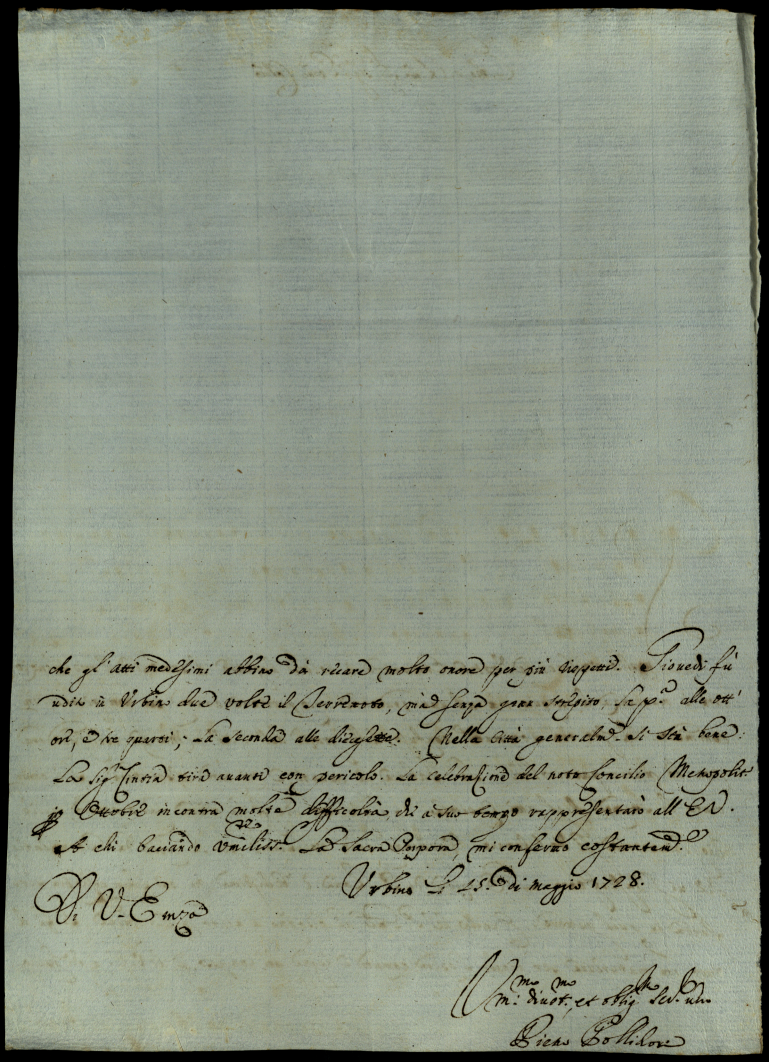 che gl'atti medesimi abbino da recare molto onore per più rispetti. Giovedì fù
udito in Urbino due volte il Terremoto, mà senza gran strepito, la p.ª alle ott'
ore, e tre quarti; La seconda alle diecisette. Nella Città generalm.e si stà bene:
La Sig.ra Cintia tira avanti con pericolo. La celebrazione del noto Concilio Metropolit.
p Ottobre incontra molte difficoltà che a suo tempo rappresentarò all' E.V.
A chi baciando umiliss.te La Sacra Porpora, mi confermo costantem.e
Urbino Li 15. di Maggio 1728.
Di V. Emza
Um.mo divot.mo et oblig.mo Ser.
Piero Pollidori